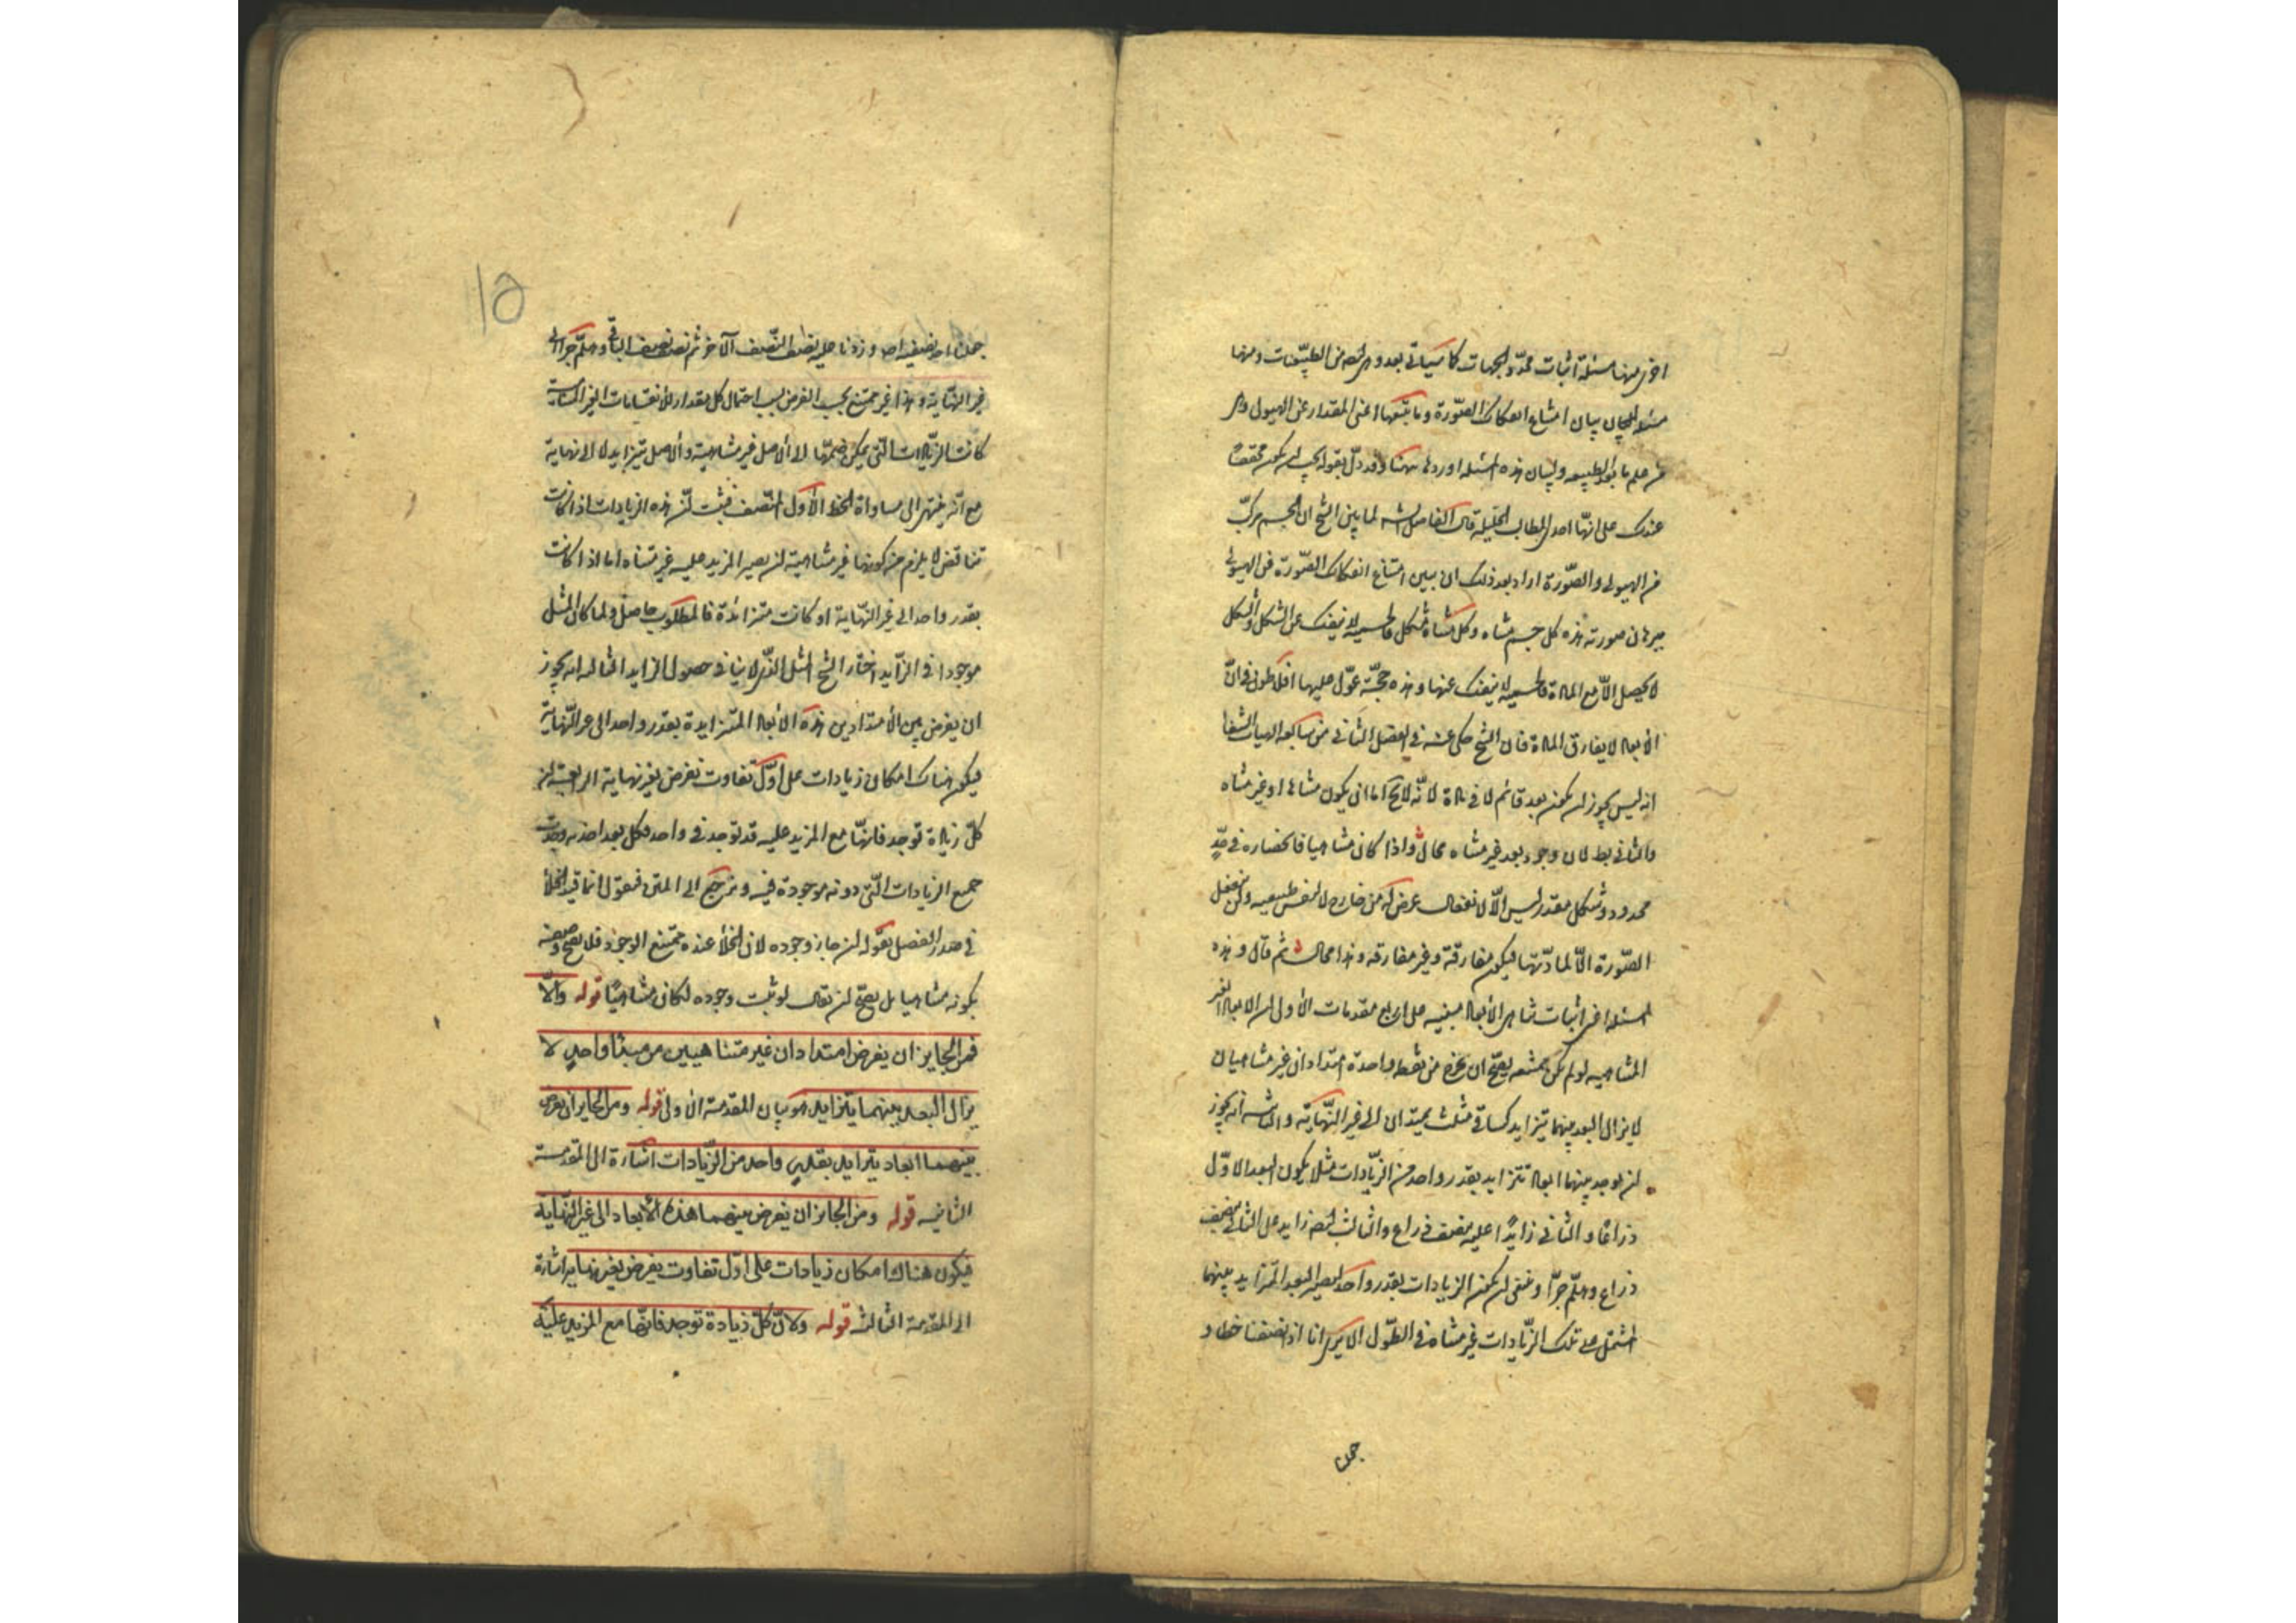 اخرى منها مسئلة اثبات محدّد الجهات كما سيأتى بعد وهى ايضا من الطبيعيّات ومنها
مسئلة بيان امتناع انفكاك الصّورة وما يتبعها اعنى المقدار عن الهيولى وهى
من علم ما بعد الطبيعة ولبيان هذه المسئلة اوردها ههنا وقد دلّ بقوله يجب ان يكون محققا
عندك على انّها احد المطالب الجليلة قال الفاضل الشارح لما بيّن الشيخ ان الجسم مركّب
من الهيولى والصّورة اراد بعد ذلك ان يبين امتناع انفكاك الصّورة عن الهيولى
برهان صورته هذه كل جسم متناه وكل متناه مشكل فالجسمية لا ينفك عن الشكل والشكل
لا يحصل الّا مع المادة فالجسمية لا ينفك عنها وهذه حجّة عوّل عليها افلاطون فى انّ
الأبعاد لا يفارق المادة فان الشيخ حكى عنه فى الفصل الثانى من سابعة الهيات الشفا
انه ليس يجوز ان يكون بعد قائم لا فى مادة لانّه لا يخ اما ان يكون متناهيا او غير متناه
والثانى بط لان وجود بعد غير متناه محال واذا كان متناهيا فانحصاره فى حدّ
محدود وشكل مقدر ليس الّا لانفعال عرض له من خارج لا لنفس طبيعته ولن ينفعل
الصّورة الّا لمادّتها فيكون مفارقة وغير مفارقة وهذا محال ثم قال وهذه
المسئلة اعنى اثبات تناهى الأبعاد مبنيه على اربع مقدمات الأولى ان الابعاد الغير
المتناهيه لو لم يكن ممتنعه يصحّ ان يخرج من نقطة واحدة امتدادان غير متناهيان
لا يزال البعد بينهما يتزايد كساقى مثلث يمتدان الى غير النّهاية والثانية انه يجوز
ان يوجد بينهما ابعاد تتزايد بقدر واحد من الزّيادات مثلا يكون البعد الاوّل
ذراعًا والثانى زايدًا عليه بنصف ذراع والثالث ايضا زايد على الثانى بنصف
ذراع وهلمّ جرّا وينبغى ان يكون الزيادات بقدر واحد ليصير البعد المتزايد بينهما
المشتمل على تلك الزّيادات غير متناه فى الطّول الا يرى انا اذا نصفنا خطا و
جعلنا
١٥
جعلنا احد نصفيه اصلا وزدنا عليه نصف النّصف الآخر ثم نصف نصف الباقى وهلمّ جرّا الى
غير النّهاية وهذا غير ممتنع بحسب الفرض بسبب احتمال كل مقدار للأنقسامات الغير المتناهية
كانت الزّيادات التى يمكن ضمها الى الأصل غير متناهية والأصل يتزايد لا الى نهاية
مع انّه ينتهى الى مساواة الخط الأول المنصف فثبت انّ هذه الزيادات اذا كانت
تتناقص لا يلزم من كونها غير متناهية ان يصير المزيد عليه غير متناه اما اذا كانت
بقدر واحد الى غير النّهاية او كانت متزائدة فالمطلوب حاصل ولما كان المثل
موجودا فى الزّايد اختار الشيخ المثل الّذى لا ينافى حصول الزايد الثالثة انه يجوز
ان يفرض بين الأمتدادين هذه الأبعاد المتزايدة بقدر واحد الى غير النّهاية
فيكون هناك امكان زيادات على اوّل تفاوت يفرض بغير نهاية الرابعة ان
كلّ زيادة توجد فانهّا مع المزيد عليه قد توجد فى واحد فكل بعد اخذته وجدت
جميع الزيادات الّتى دونه موجودة فيه ونرجع الى المتن فنقول انما قيد الخلأ
فى صدر الفصل بقوله ان جاز وجوده لان الخلأ عنده ممتنع الوجود فلا يصح وصفه
بكونه متناهيا بل يصحّ ان يقال لو ثبت وجوده لكان متناهيًا قوله والّا
فمن الجايز ان يفرض امتدادان غير متناهيين من مبدأ واحد لا
يزال البعد بينهما يتزايد هو بيان المقدمة الأولى قوله ومن الجايز ان يفرض
بينهما ابعاد يتزايد بقدرٍ واحد من الزّيادات اشارة الى المقدمة
الثانيه قوله ومن الجايز ان يفرض بينهما هذه الأبعاد الى غير النّهاية
فيكون هناك امكان زيادات على اوّل تفاوت يفرض بغير نهاية اشارة
الى المقدّمة الثالثة قوله ولانّ كلّ زيادة توجد فانّها مع المزيد عليه